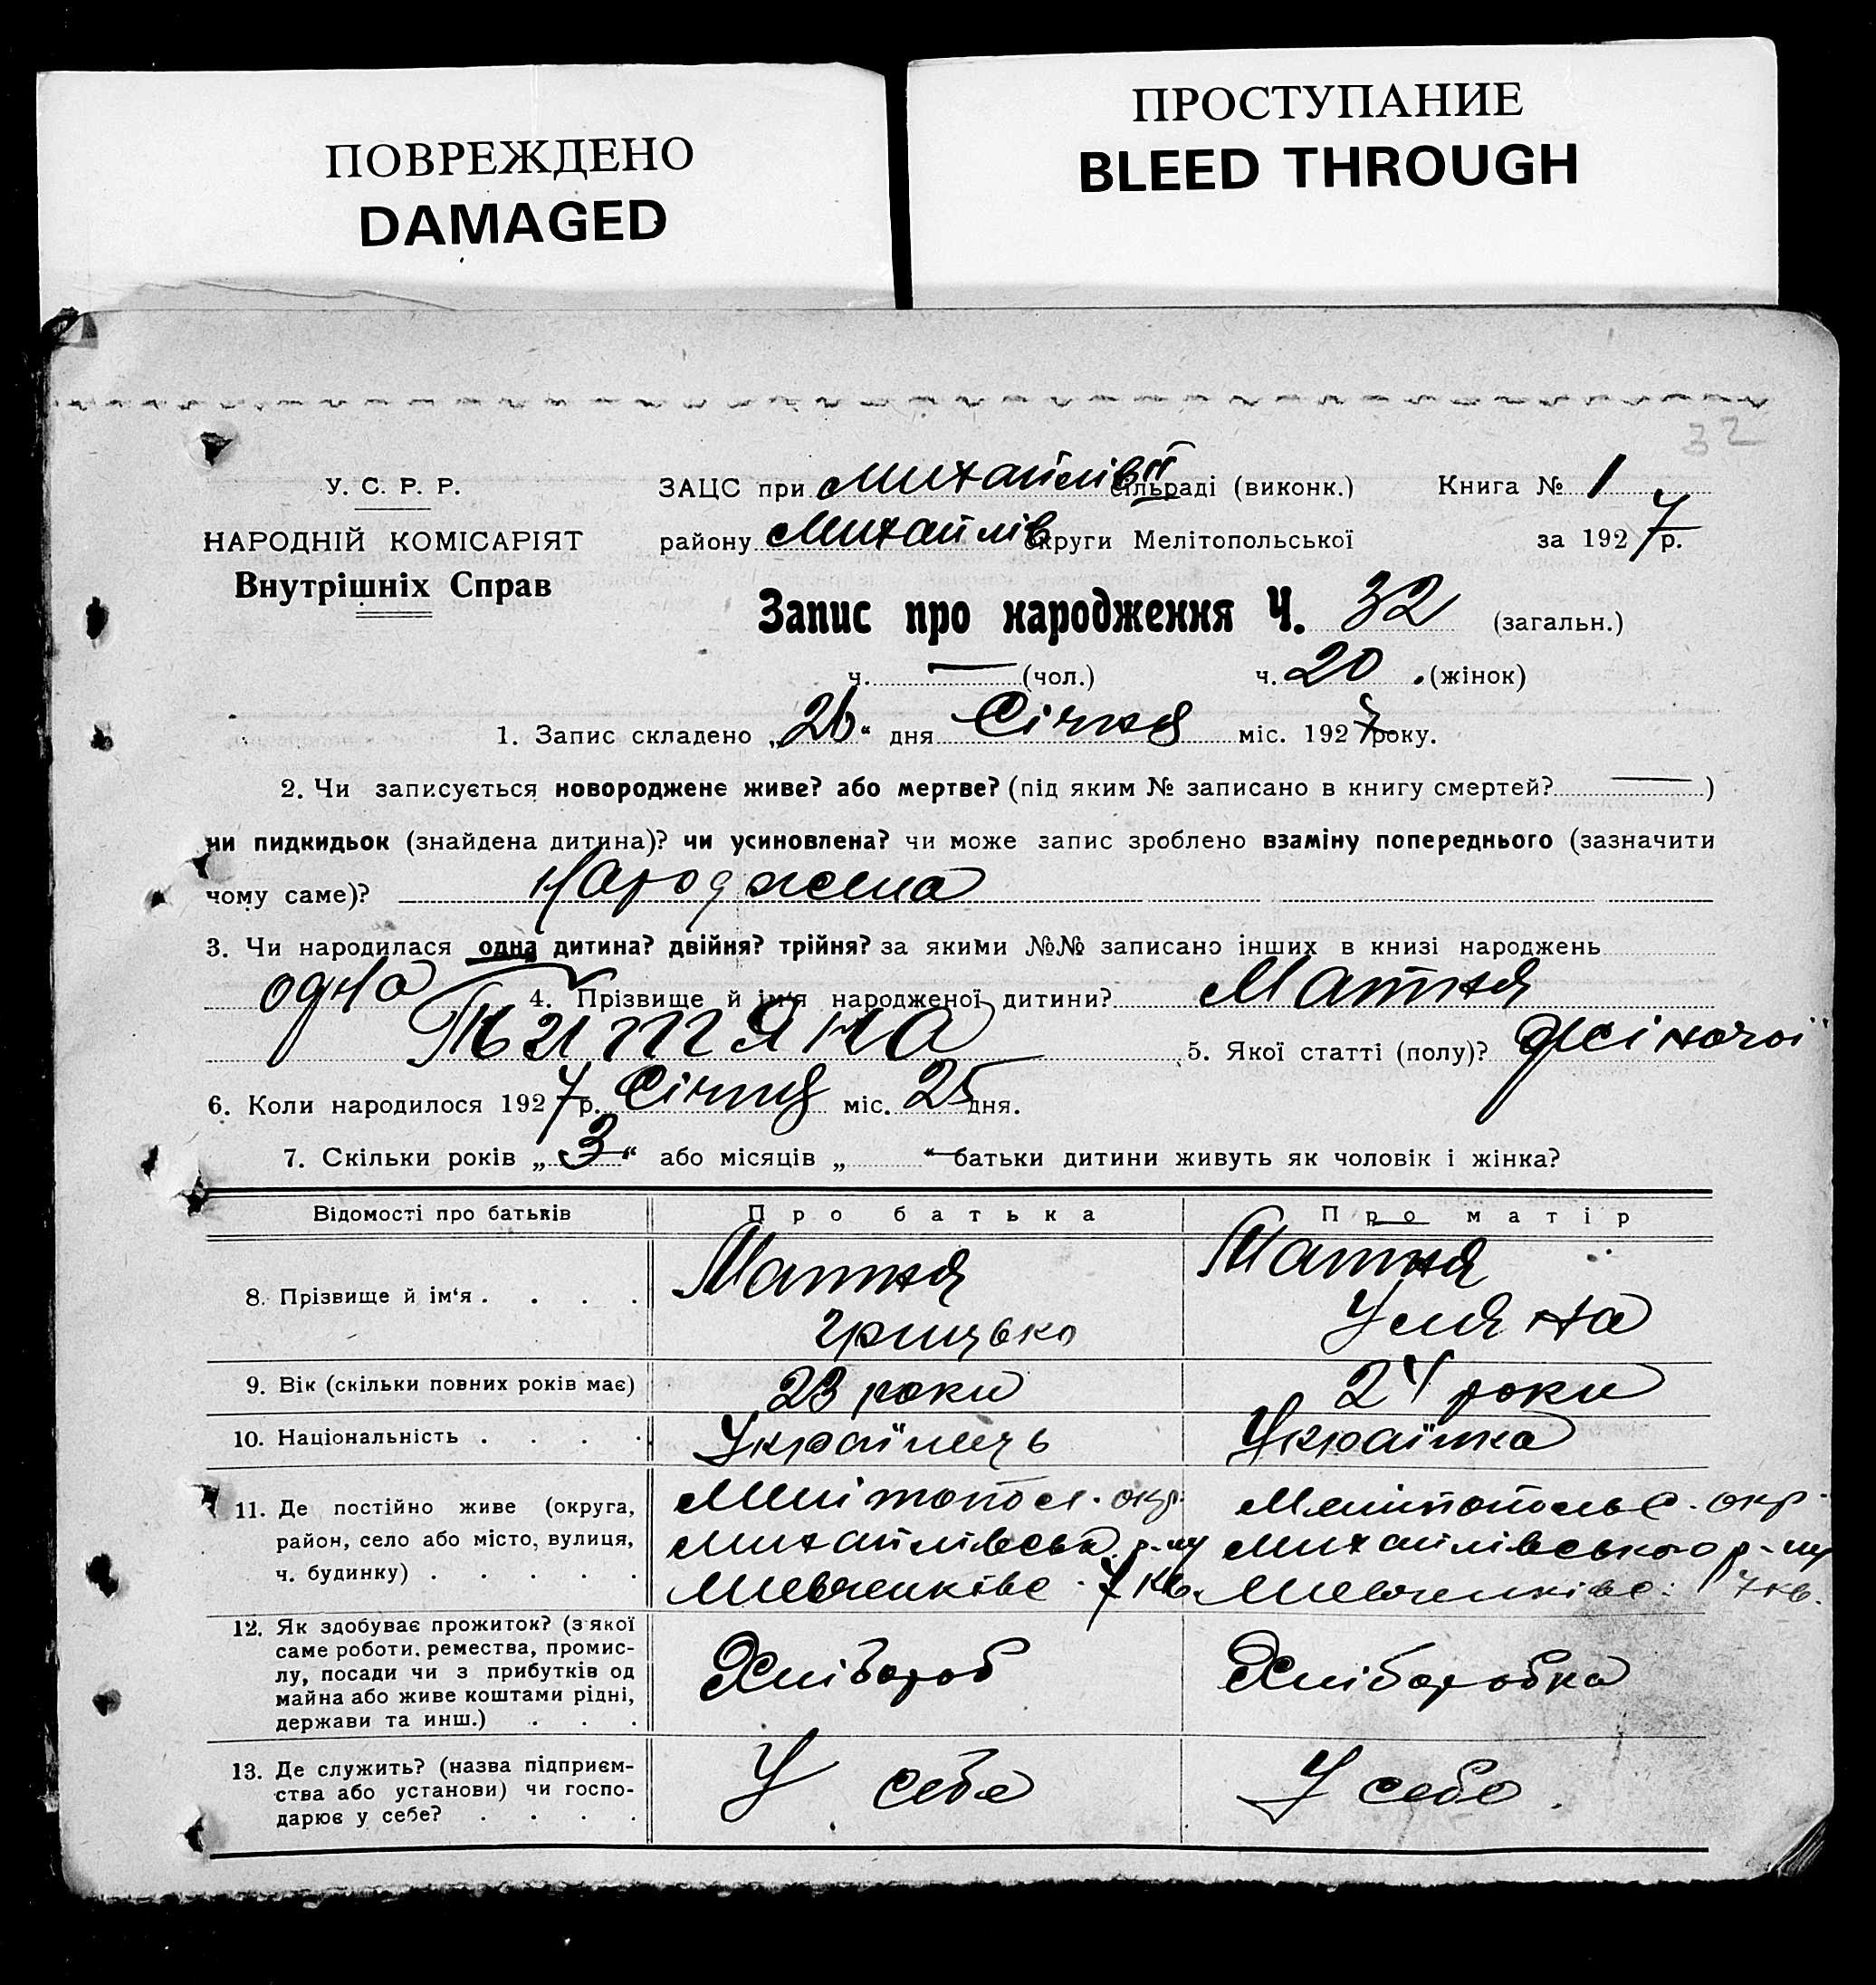 ПОВРЕЖДЕНО
DAMAGED
ПРОСТУПАНИЕ
BLEED THROUGH
32
У. С. Р. Р.
НАРОДНІЙ КОМІСАРІЯТ
Внутрішніх Справ
ЗАЦС при Михайлів II сільраді (виконк.) Книга № 1
району Михайлів округи Мелітопольської за 1927 р.
Запис про народження Ч. 32 (загальн.)
ч. — (чол.) ч. 20 . (жінок)
1. Запис складено „26“ дня Січня міс. 1927 року.
2. Чи записується новороджене живе? або мертве? (під яким № записано в книгу смертей? — )
чи пидкидьок (знайдена дитина)? чи усиновлена? чи може запис зроблено взаміну попереднього (зазначити
чому саме)? Народжена
3. Чи народилася одна дитина? двійня? трійня? за якими №№ записано інших в книзі народжень
одна 4. Прізвище й ім'я народженої дитини? Матня
5. Якої статті (полу)? жіночої
6. Коли народилося 1927 р. Січня міс. 25 дня.
7. Скільки років „3“ або місяців „ “ батьки дитини живуть як чоловік і жінка?
Відомості про батьків Про батька Про матір
8. Прізвище й ім'я . . . . Матня Матня
Грицько Уляна
9. Вік (скільки повних років має) 23 роки 24 роки
10. Національність . . . . Українець Українка
11. Де постійно живе (округа, Мелітопол. окр. Мелітопольс. окр.
район, село або місто, вулиця, Михайлівськ. р-ну Михайлівського р-ну
ч. будинку) . . . . . Шевченківс. 7 кв. Шевченківс. 7 кв.
12. Як здобуває прожиток? (з якої
саме роботи, ремества, промис-
лу, посади чи з прибутків од Хлібороб Хліборобка
майна або живе коштами рідні,
держави та инш.) . . .
13. Де служить? (назва підприєм-
ства або установи) чи госпо- У себе У себе.
дарює у себе? . . . .